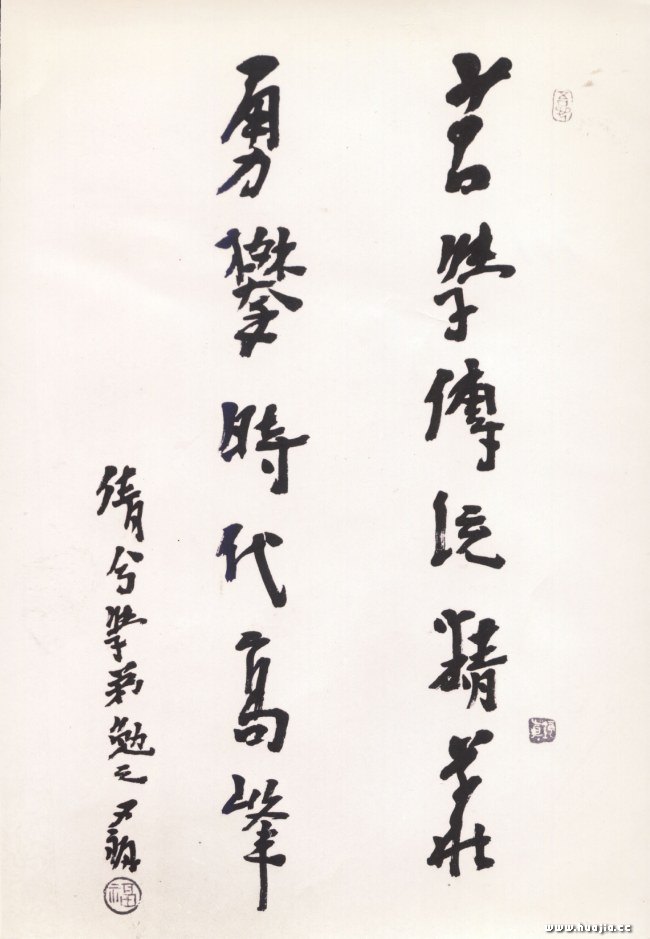 苦學傳统精
勇攀時代高峰
倩兮學弟勉之
福
www.huajia.cc